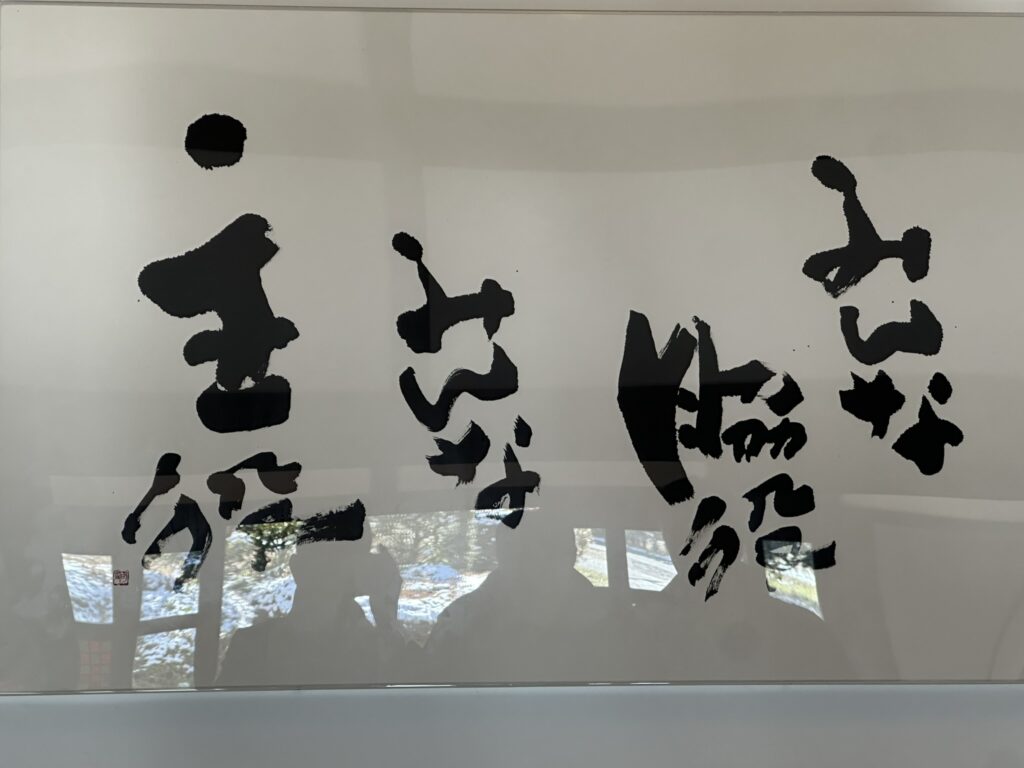 みんな
脇役
みんな
主役